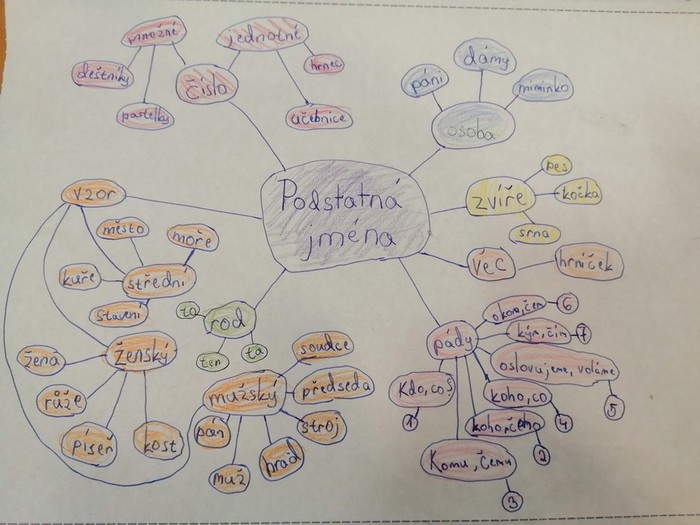 množné
jednotné
deštníky
pastelky
číslo
hrnec
učebnice
páni
dámy
miminko
osoba
Podstatná
jména
zvíře
pes
kočka
srna
věc
hrníček
vzor
město
moře
kuře
střední
stavení
ženský
žena
růže
píseň
kost
rod
to
ten
ta
mužský
soudce
předseda
stroj
hrad
muž
pán
pády
okom,čem
6
kým,čím
7
oslovujeme, voláme
5
koho,co
4
koho,čeho
2
Komu, čemu
3
Kdo,co?
1